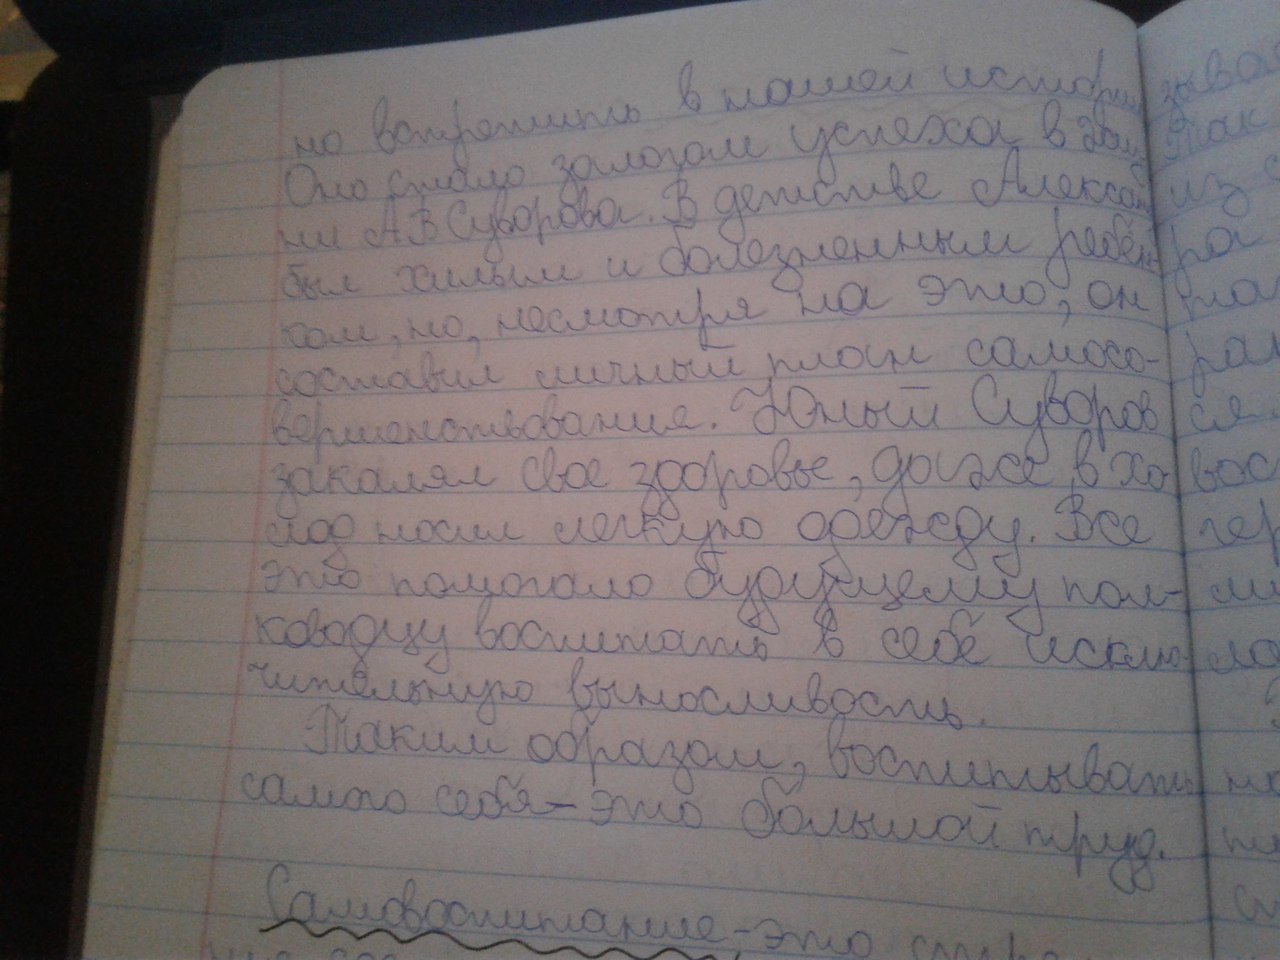 но встретить в нашей истории
Оно стало залогом успеха в
ни А.В Суворова. В детстве Александр
был хилым и болезненным ребён-
ком, но, несмотря на это, он
составил личный план самосо-
вершенствования. Юный Суворов
закалял свое здоровье, даже в хо-
лод носил легкую одежду. Все
это помогало будущему пол-
ководцу воспитать в себе исклю-
чительную выносливость.
Таким образом, воспитывать
самого себя - это большой труд.
Самовоспитание - это
зыва
Так
из
ра
ра
ся
вос
чер